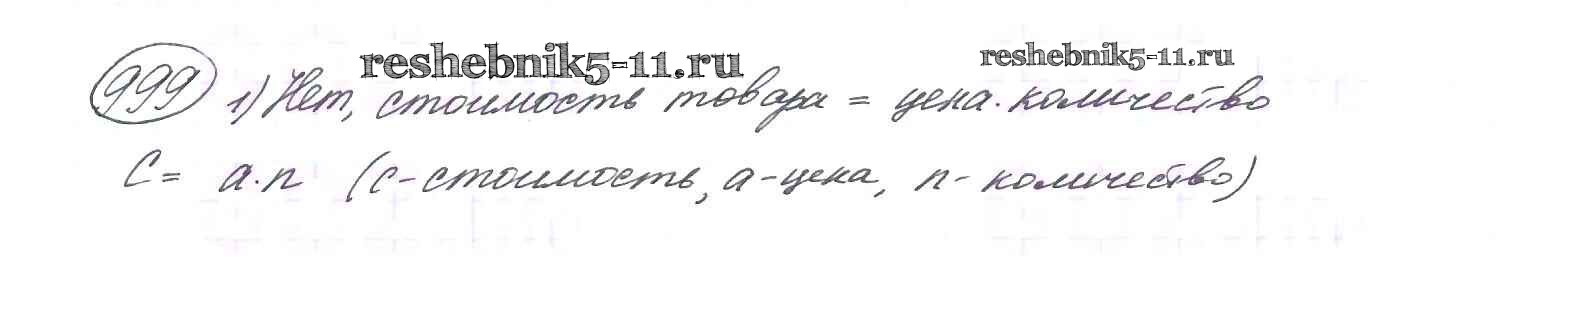 reshebnik5-11.ru reshebnik5-11.ru
999 1) Нет, стоимость товара = цена · количество
C = a · n (c - стоимость, a - цена, n - количество)